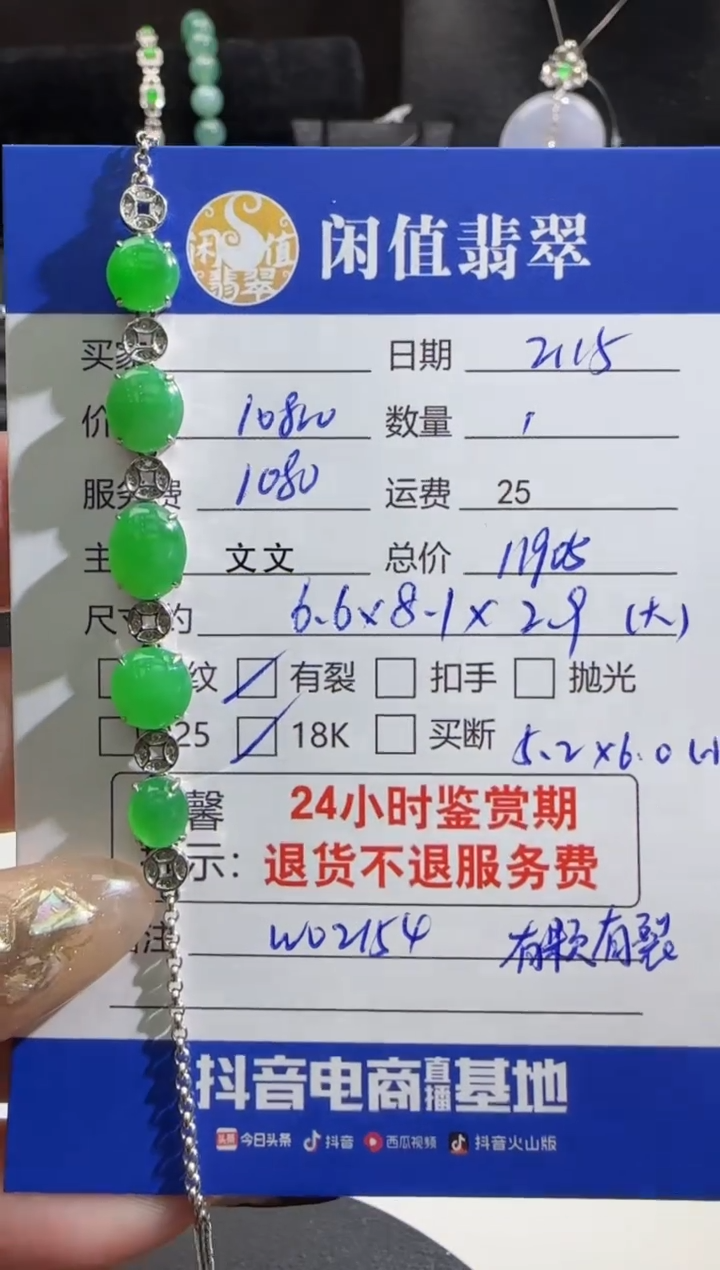 闲值翡翠
闲值
翡翠
买家 日期 2115
价 10800 数量 1
服务费 1080 运费 25
主 文文 总价 11905
尺寸约 6.6x8.1x2.9 (大)
纹 有裂 扣手 抛光
25 18K 买断 5.2x6.0
馨 24小时鉴赏期
示: 退货不退服务费
注 W02154 有颗有裂
抖音电商直播基地
头条 今日头条 抖音 西瓜视频 抖音火山版